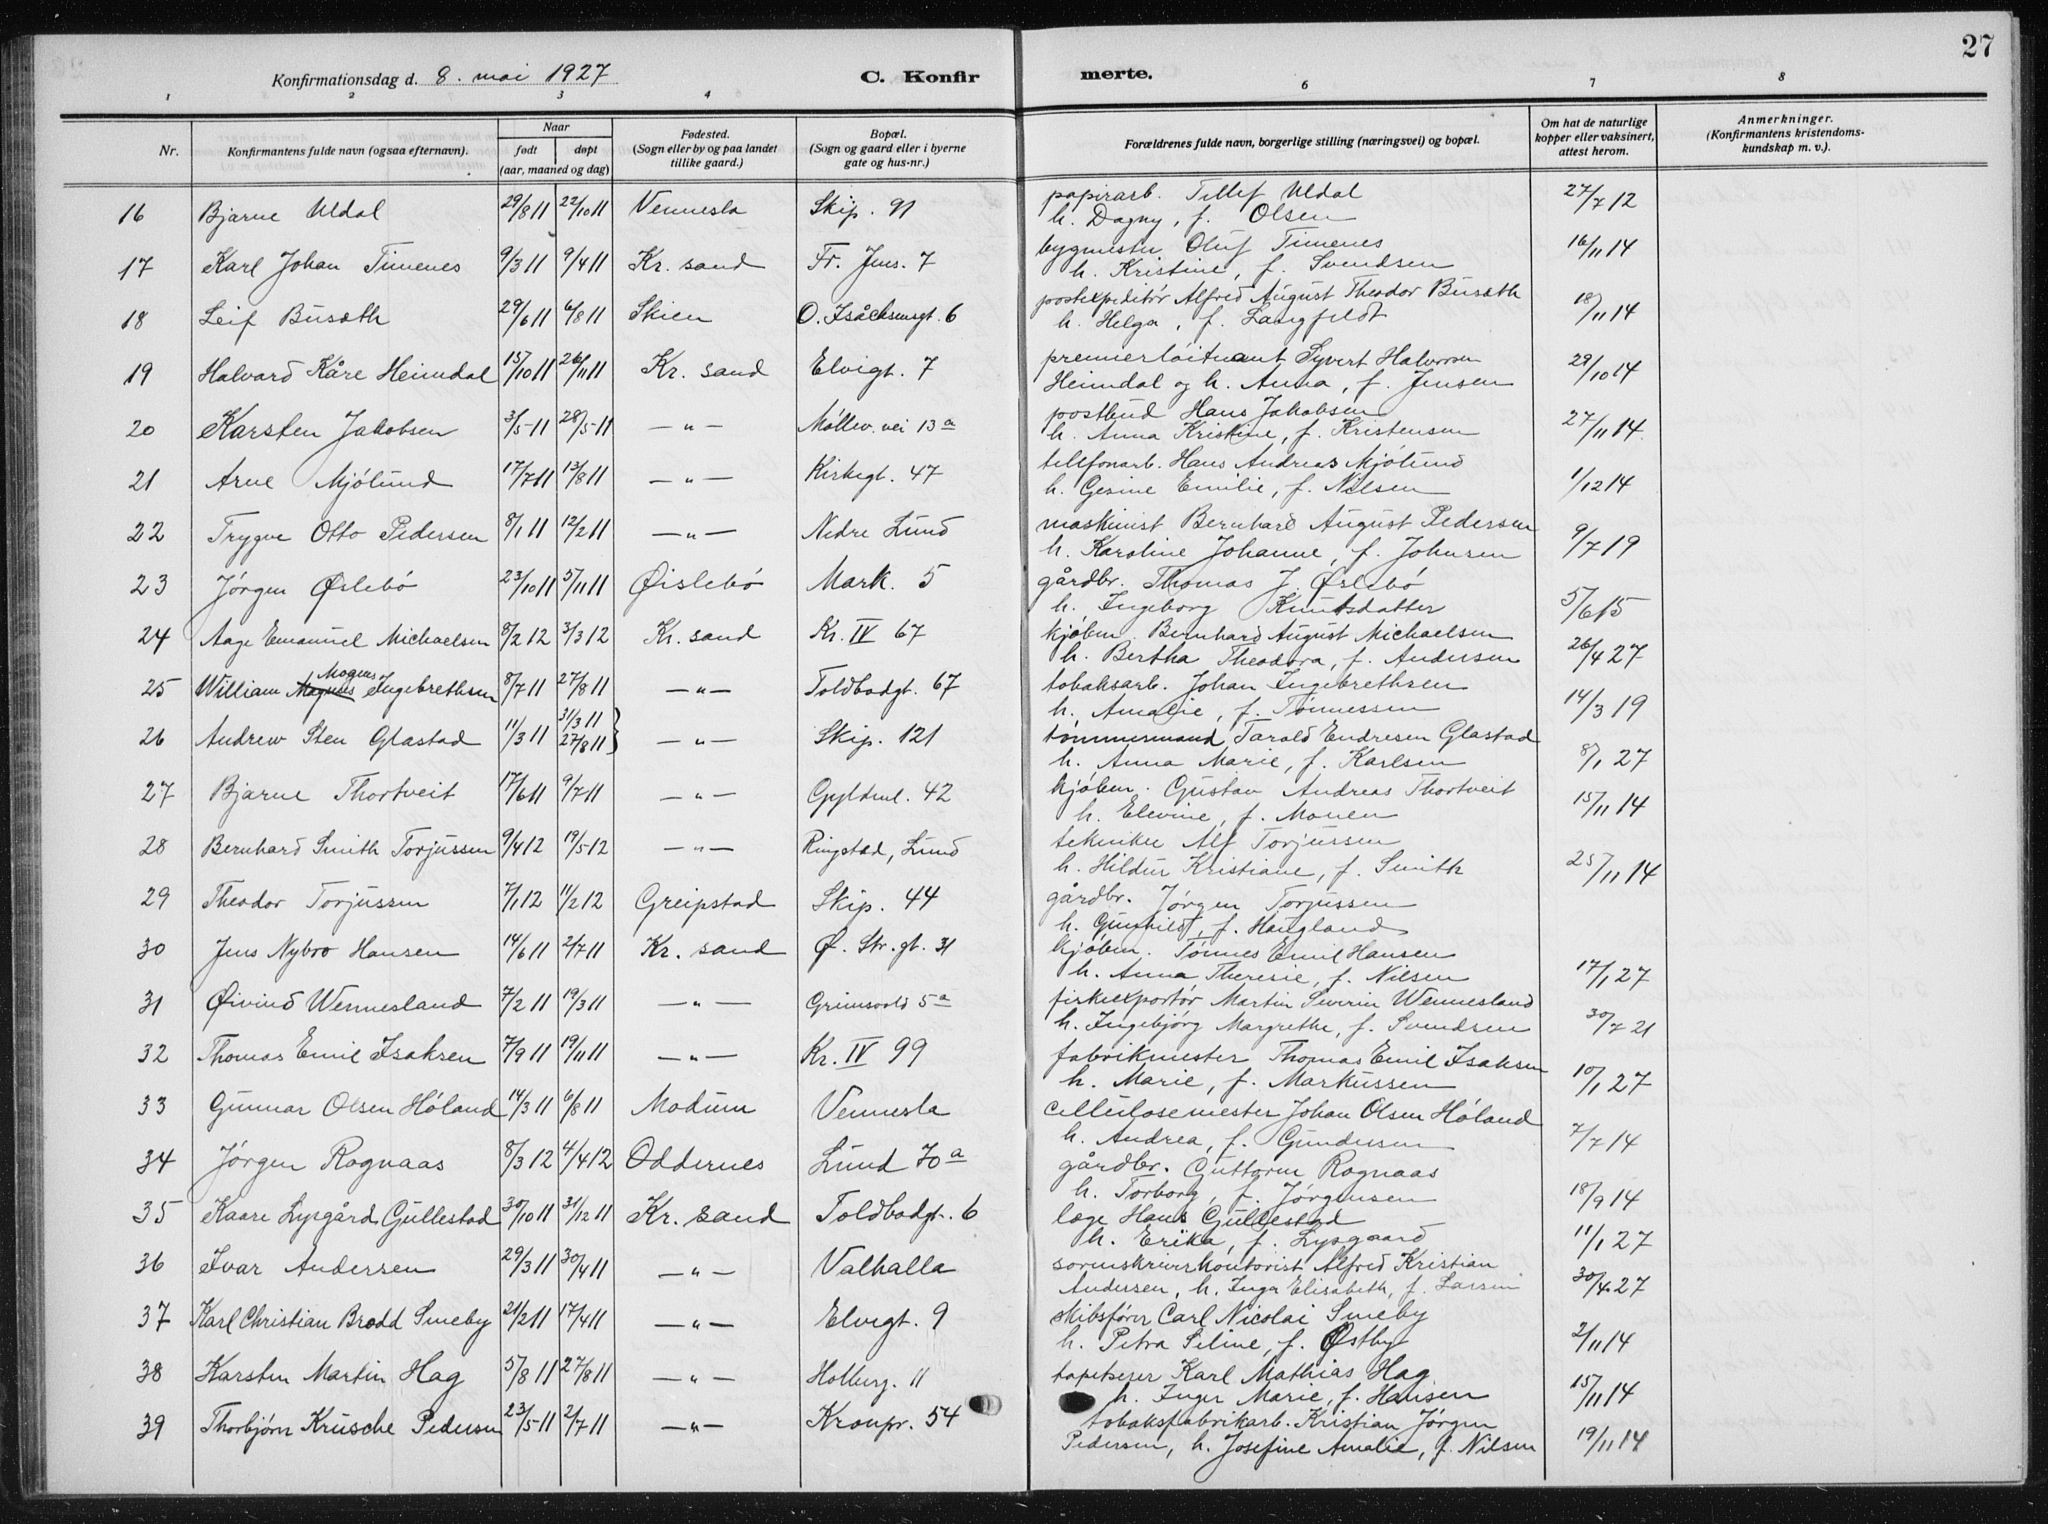 27
Konfirmationsdag d. 8. mai 1927 C. Konfirmerte.
1 2 3 4 6 7 8
Nr. Konfirmantens fulde navn (ogsaa efternavn). Naar født døpt (aar, maaned og dag) Fødested. (Sogn eller by og paa landet tillike gaard.) Bopæl. (Sogn og gaard eller i byerne gate og hus-nr.) Forældrenes fulde navn, borgerlige stilling (næringsvei) og bopæl. Om hat de naturlige kopper eller vaksinert, attest herom. Anmerkninger. (Konfirmantens kristendoms-kundskap m. v.).
16 Bjarne Uldal 29/8 11 22/10 11 Vennesla Skip. 91 papirarb. Tellef Uldal 27/7 12
h. Dagny, f. Olsen
17 Karl Johan Timenes 9/3 11 9/4 11 Kr. sand Fr. Jms. 7 bygmester Oluf Timenes 16/11 14
h. Kristine, f. Svendsen
18 Leif Busæth 29/6 11 6/8 11 Skien O. Isachsensgt. 6 postexpeditör Alfred August Theodor Busæth 18/11 14
h. Helga, f. Langfeldt
19 Halvard Kåre Heimdal 15/10 11 26/11 11 Kr. sand Elvegt. 7 premierløitnant Syvert Halvorsen 29/10 14
Heimdal og h. Anna, f. Jensen
20 Karsten Jakobsen 3/5 11 28/5 11 — " — Møllev. vei 13a postbud Hans Jakobsen 27/11 14.
h. Anna Kristine, f. Kristensen
21 Arne Mjölund 17/7 11 13/8 11 — " — Kirkegt. 47 telefonarb. Hans Andreas Mjölund 1/12 14
h. Gesine Emilie, f. Nilsen
22 Trygve Otto Pedersen 8/1 11 12/2 11 — " — Nedre Lund maskinist Bernhard August Pedersen 9/7 19
h. Karoline Johanne, f. Johnsen
23 Jörgen Øslebö 23/10 11 5/11 11 Øislebö Mark. 5 gårdbr. Thomas J. Øslebö 5/6 15
h. Ingeborg Knutsdatter
24 Aage Emanuel Michaelsen 8/2 12 3/3 12 Kr. sand Kr. IV 67 kjöbm. Bernhard August Michaelsen 26/4 27
h. Bertha Theodora, f. Andersen
25 William Magnus Mogens Ingebrethsen 8/7 11 27/8 11 — " — Toldbodgt. 67 tobaksarb. Johan Ingebrethsen 14/3 19
h. Amalie, f. Tönnessen
26 Andrew Sten Glastad 11/3 11 31/3 11 27/8 11 } — " — Skip. 121 tömmermand Tarald Endresen Glastad 8/1 27
h. Anna Marie, f. Karlsen
27 Bjarne Thortveit 17/6 11 9/7 11 — " — Gyldenl. 42 kjöbm. Gustav Andreas Thortveit 15/11 14
h. Elevine, f. Monen
28 Bernhard Smith Torjussen 9/4 12 19/5 12 — " — Ringstad, Lund tekniker Alf Torjussen 25/11 14
h. Hildur Kristiane, f. Smith
29 Theodor Torjussen 7/1 12 11/2 12 Greipstad Skip. 44 gårdbr. Jörgen Torjussen
h. Gunhild, f. Haugland
30 Jens Nybro Hansen 14/6 11 2/7 11 Kr. sand Ø. Str. gt. 31 kjöbm. Tönnes Emil Hansen 17/1 27
h. Anna Theresie, f. Nilsen
31 Øivind Wennesland 7/2 11 19/3 11 — " — Grimsvold 5a fiskeexportör Martin Severin Wennesland 30/7 21
h. Ingebjörg Margrethe, f. Svendsen
32 Thomas Emil Isaksen 7/9 11 19/11 11 — " — Kr. IV 99 fabrikmester Thomas Emil Isaksen 10/1 27
h. Marie, f. Markussen
33 Gunnar Olsen Höland 14/3 11 6/8 11 Modum Vennesla cellulosemester Johan Olsen Höland 7/7 14
h. Andrea, f. Gundersen
34 Jörgen Rognaas 8/3 12 4/4 12 Oddernes Lund 70a gårdbr. Guttorm Rognaas 18/9 14
h. Torborg, f. Jörgensen
35 Kaare Lysgård Gullestad 30/10 11 31/12 11 Kr. sand Toldbodgt. 6 læge Hans Gullestad 11/1 27
h. Erika, f. Lysgaard
36 Ivar Andersen 29/3 11 30/4 11 — " — Valhalla sorenskriverkontorist Alfred Kristian 30/4 27
Andersen, h. Inga Elisabeth, f. Larsen
37 Karl Christian Brodd Smeby 21/2 11 17/4 11 — " — Elvegt. 9 skibsfører Carl Nicolai Smeby 2/11 14
h. Petra Seline, f. Østby
38 Karsten Martin Hag 5/8 11 27/8 11 — " — Holberg. 11 tapetserer Karl Mathias Hag 15/11 14
h. Inger Marie, f. Hansen
39 Thorbjörn Krusche Pedersen 23/5 11 2/7 11 — " — Kronpr. 54 tobaksfabrikarb. Kristian Jörgen 19/11 14
Pedersen, h. Josefine Amalie, f. Nilsen